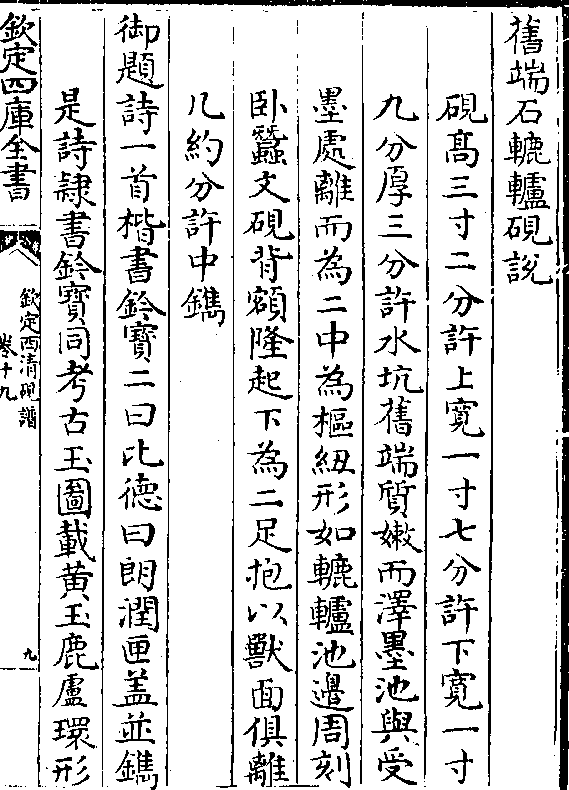 舊端石轆轤硯說
硯髙三寸二分許上寛一寸七分許下寛一寸
九分厚三分許水坑舊端質嫩而澤墨池與受
墨處離而為二中為樞紐形如轆轤池邊周刻
卧蠶文硯背額隆起下為二足抱以獸面俱離
几約分許中鐫
御題詩一首楷書鈐寶二曰比德曰朗潤匣葢並鐫
是詩隷書鈐寶同考古玉圖載黄玉鹿盧環形
欽定四庫全書
欽定西清硯譜
卷十九
九